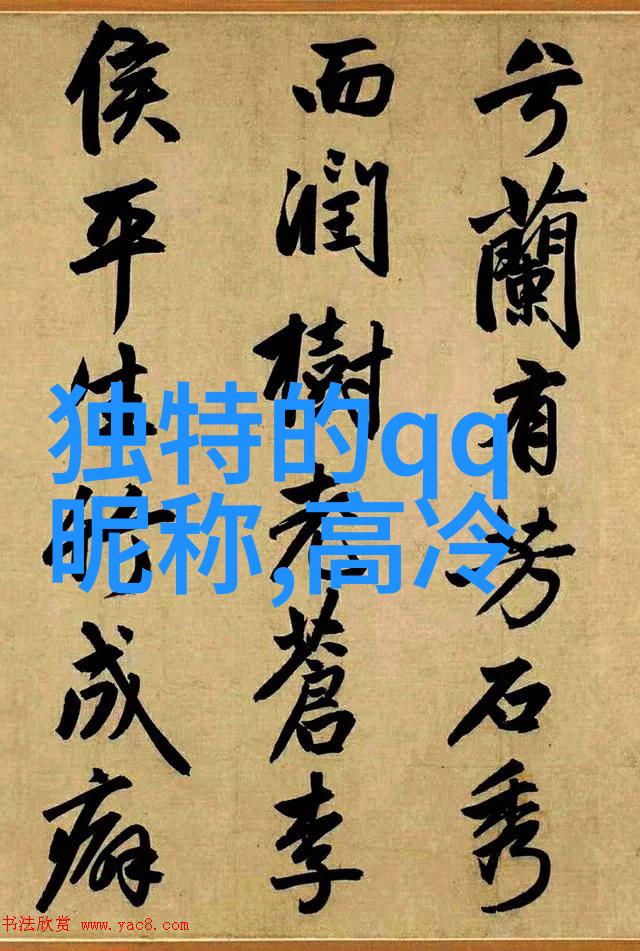 兮蘭有芳石秀
而潤樹老蒼李
侯平生竹成癖
独特的qq
昵称,高冷
书法欣赏 www.yac8.com